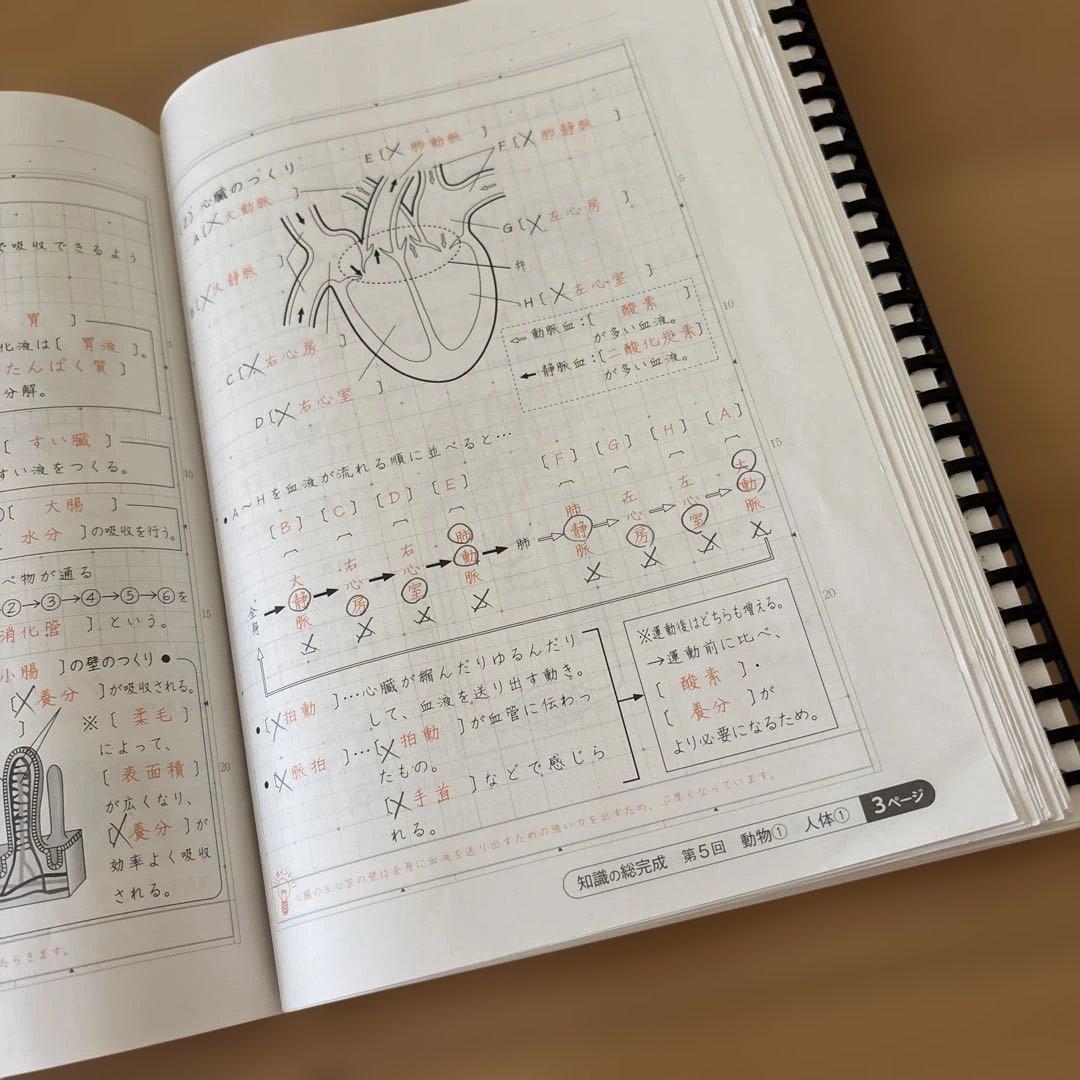 で吸収できるよう
胃 ]
化液は[ 胃液 ]。
たんぱく質 ]
分解。
[ すい臓 ]
すい液をつくる。
[ 大腸 ]
水分 ]の吸収を行う。
べ物が通る
②→③→④→⑤→⑥を
消化管 ] という。
小腸 ]の壁のつくり●
[養分 ]が吸収される。
※[ 柔毛 ]
によって、
[ 表面積 ]
が広くなり、
[養分 ]が
効率よく吸収
される。
たらきます。
5
10
15
20
心臓のつくり
E[ 肺動脈 ]
F[ 肺静脈 ]
A[ 大動脈 ]
B[ 大静脈 ]
G[ 左心房 ]
弁
H[ 左心室 ]
C[ 右心房 ]
D[ 右心室 ]
⇦動脈血:[ 酸素 ]
が多い血液。
←静脈血:[二酸化炭素]
が多い血液。
•A〜Hを血液が流れる順に並べると…
[B] [C] [D] [E] [F] [G] [H] [A]
全身→大静脈→右心房→右心室→肺動脈→肺⇨肺静脈⇨左心房⇨左心室⇨大動脈
•[拍動 ]…心臓が縮んだりゆるんだり
して、血液を送り出す動き。
•[脈拍 ]…[拍動 ]が血管に伝わっ
たもの。
[手首 ]などで感じら
れる。
※運動後はどちらも増える。
→運動前に比べ、
[ 酸素 ]・
[ 養分 ]が
より必要になるため。
心臓の左心室の壁は全身に血液を送り出すための強い力を出すため、ぶ厚くなっています。
5
10
15
20
知識の総完成 第5回 動物① 人体① 3ページ